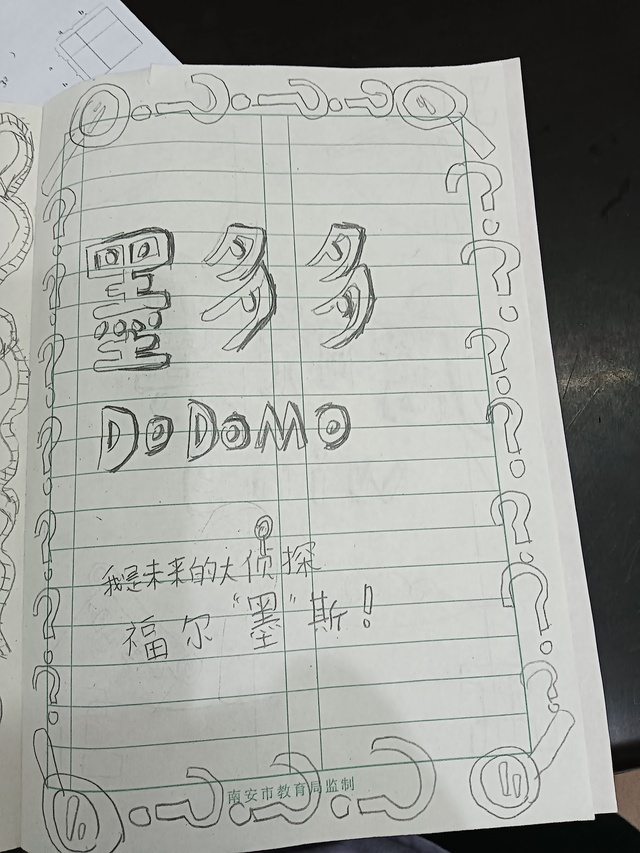 墨多多
DODOMO
我是未来的大侦探
福尔"墨"斯!
南安市教育局监制